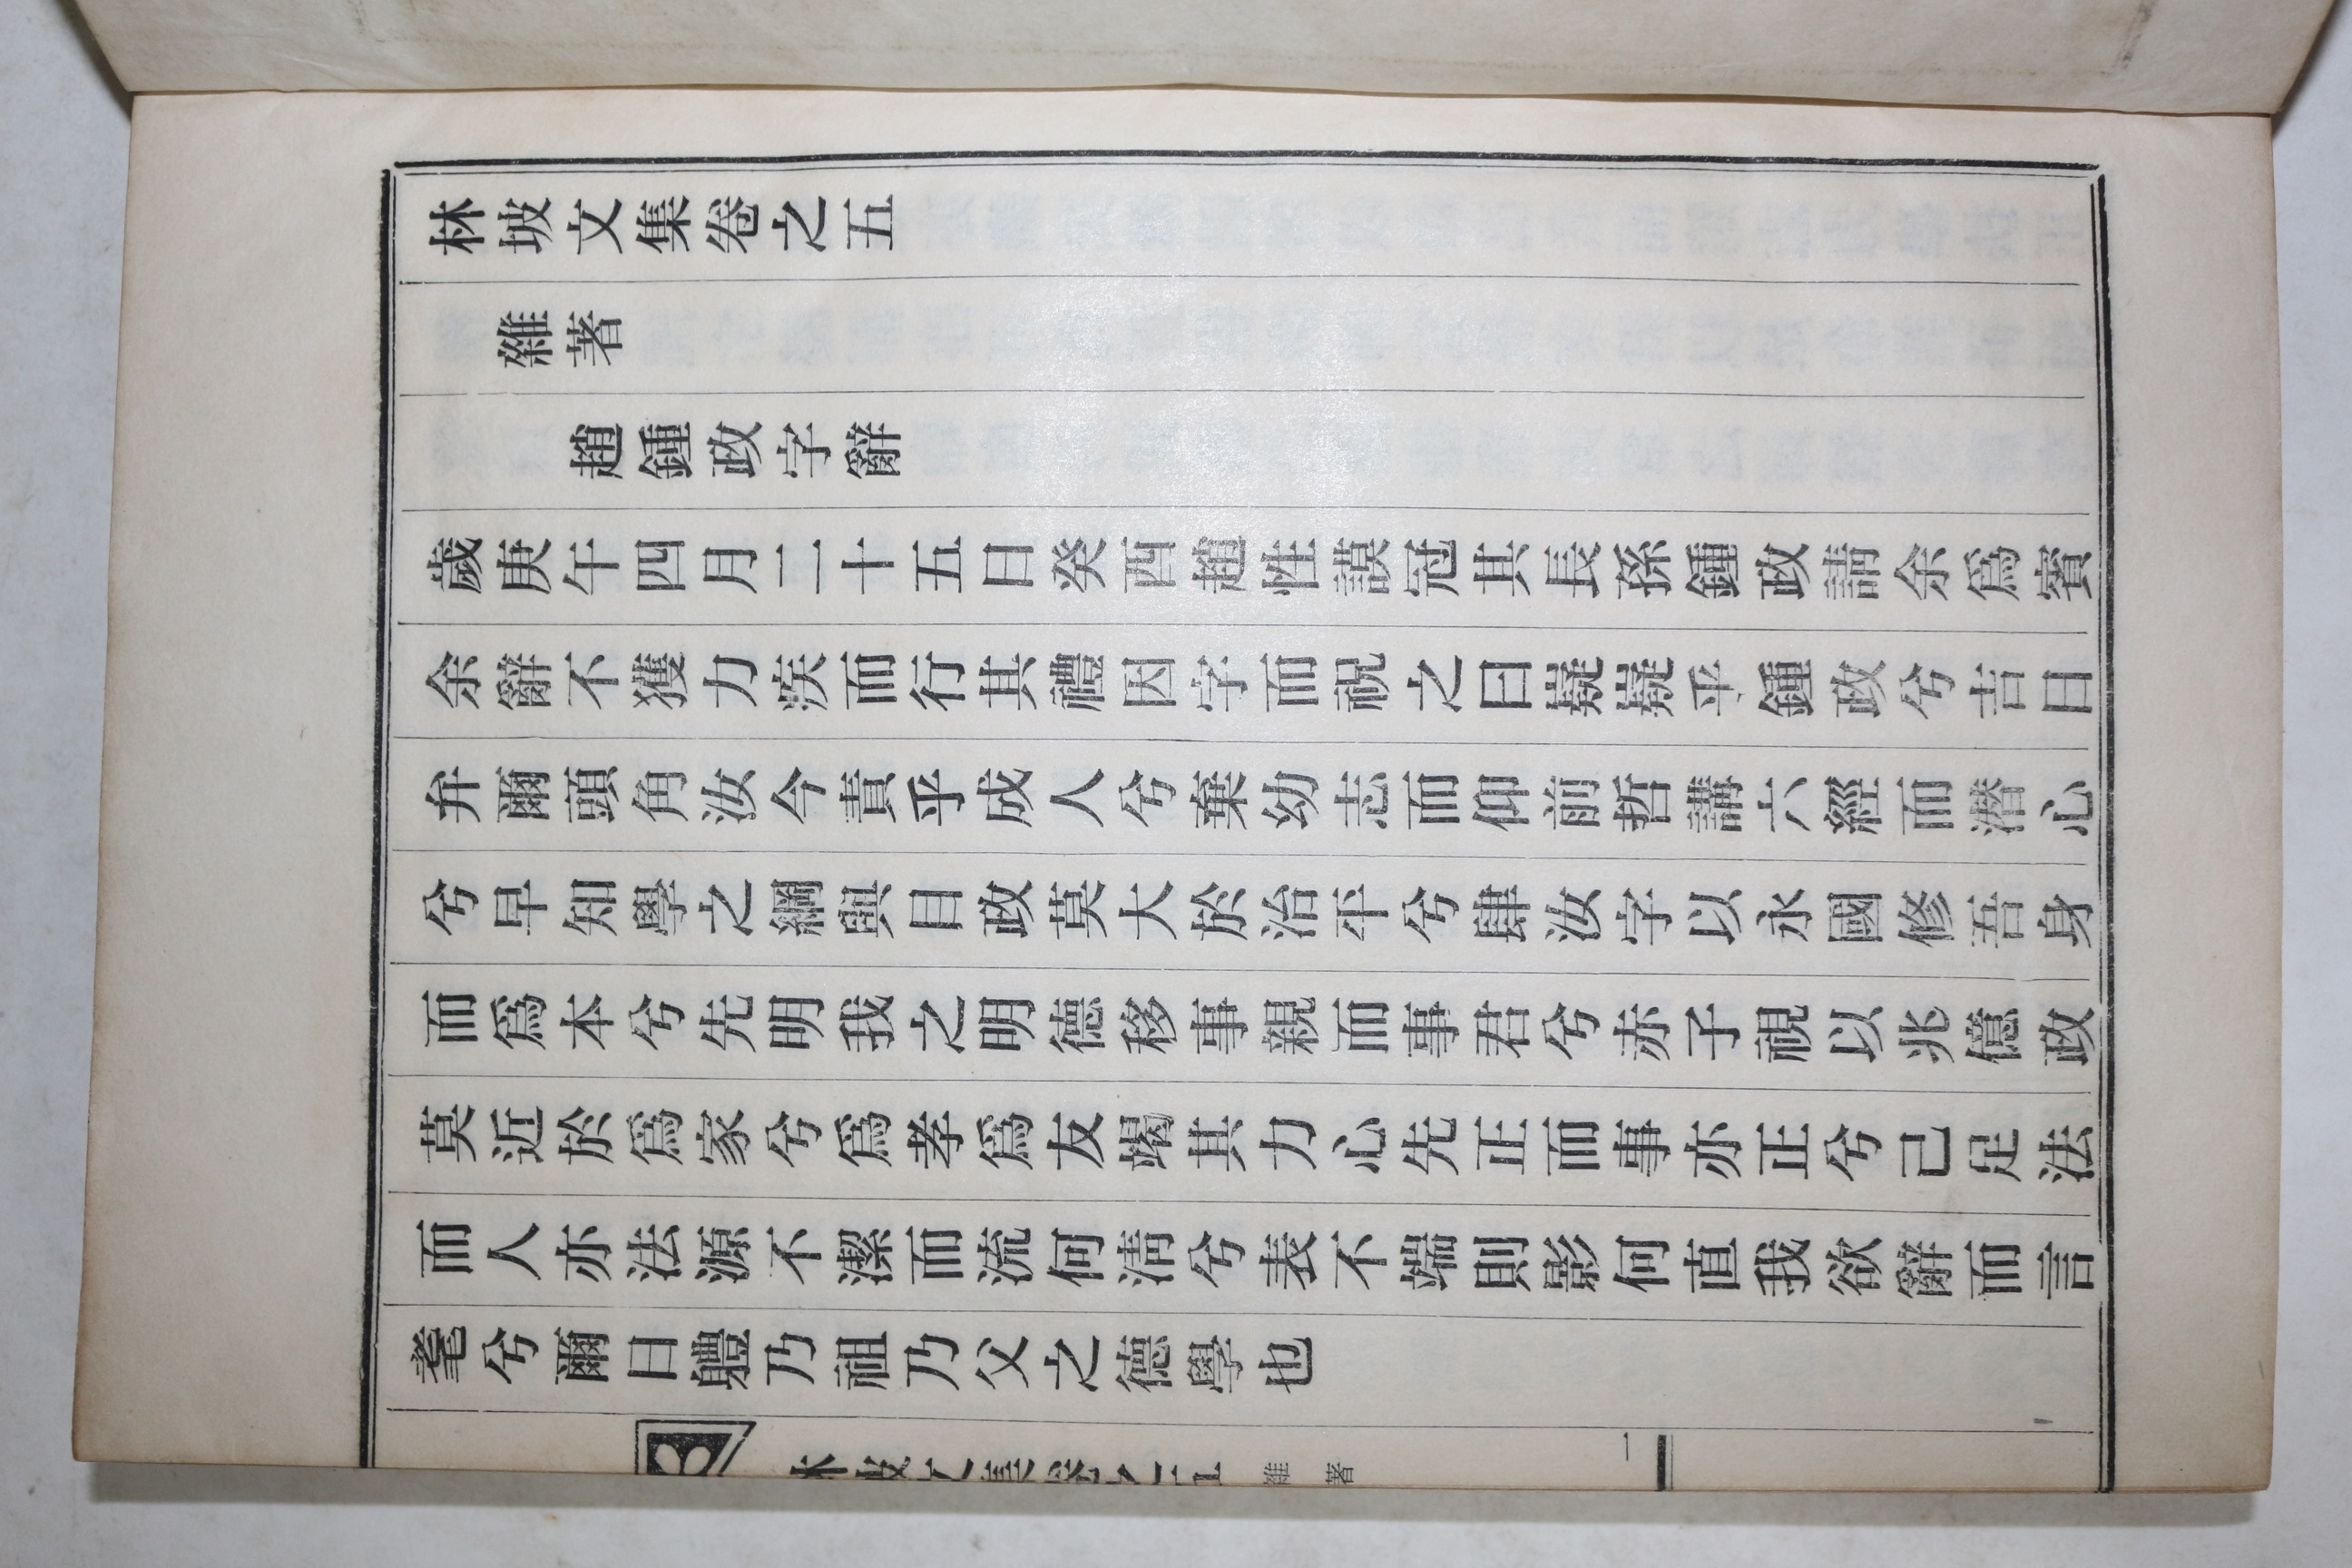 林坡文集卷之五
雜著
趙鍾政字辭
歲庚午四月二十五日癸酉趙性謨冠其長孫鍾政請余爲賓
余辭不獲力疾而行其禮因字而祝之曰嶷嶷乎鍾政兮吉日
弁爾頭角汝今責乎成人兮棄幼志而仰前哲講六經而潛心
兮早知學之綱與目政莫大於治平兮肆汝字以永國修吾身
而爲本兮先明我之明德移事親而事君兮赤子視以兆億政
莫近於爲家兮爲孝爲友竭其力心先正而事亦正兮己足法
而人亦法源不潔而流何淸兮表不端則影何直我欲辭而言
耄兮爾曰軆乃祖乃父之德學也
林坡文集卷之五 雜著 一